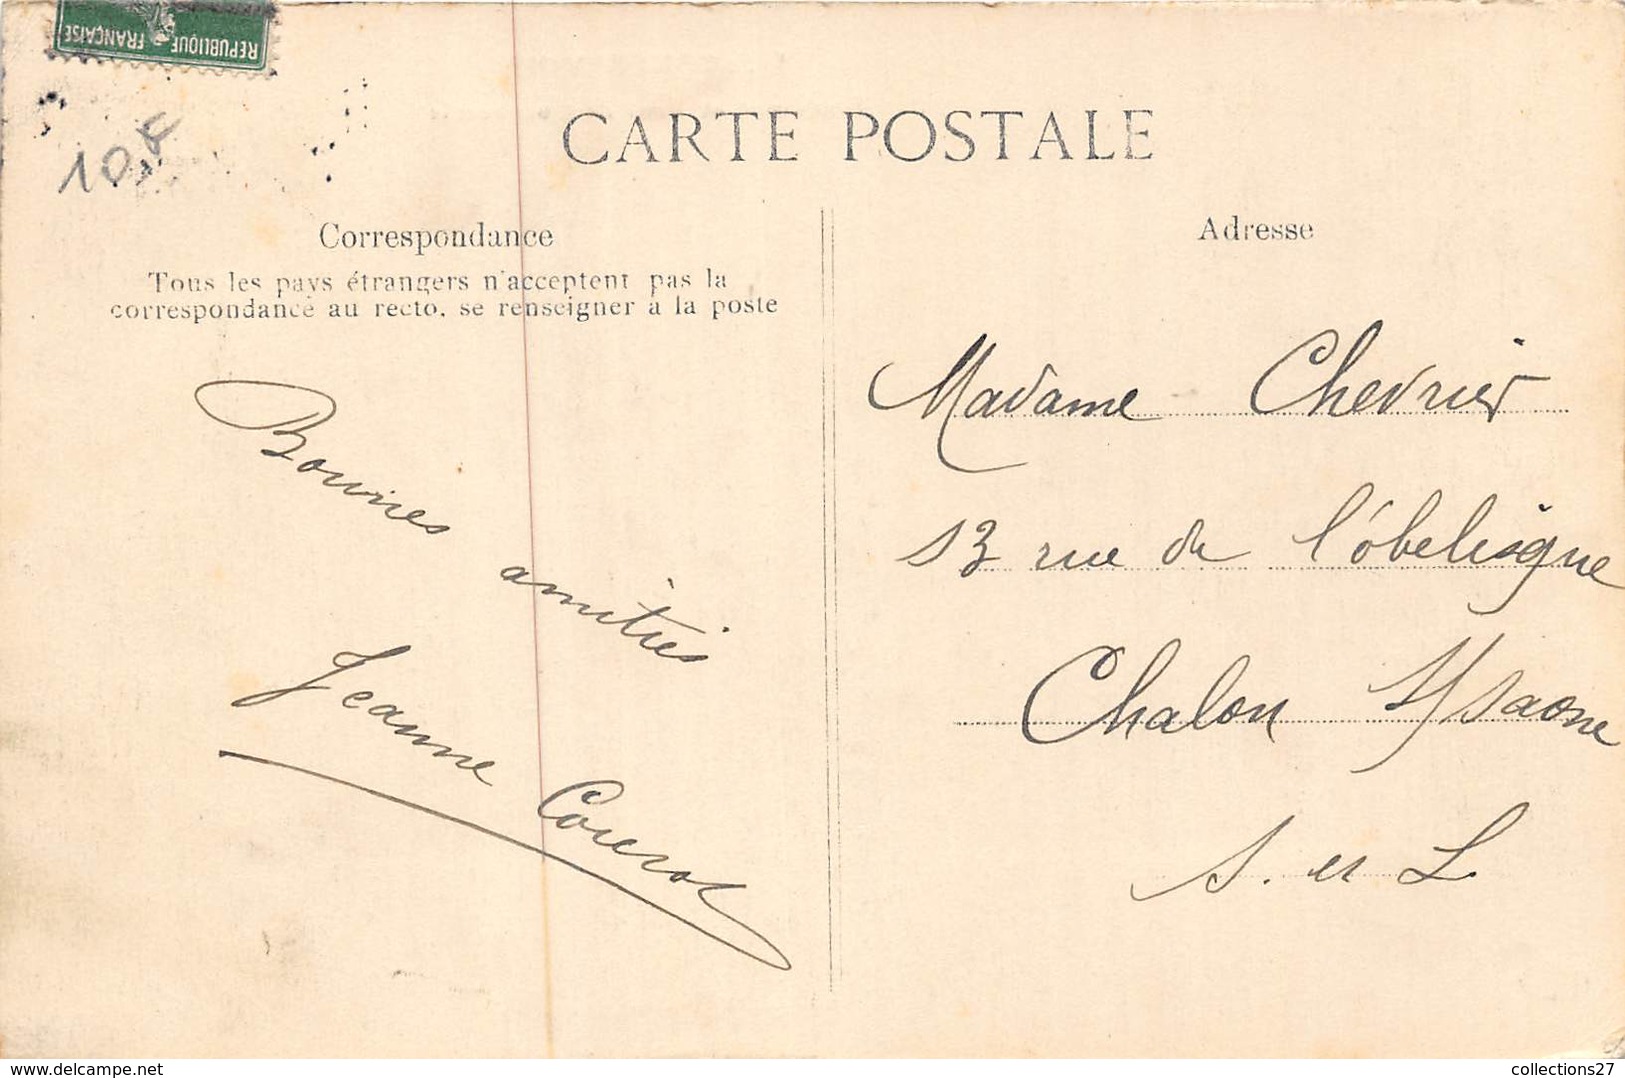 REPUBLIQUE FRANÇAISE
10,F
CARTE POSTALE
Correspondance
Tous les pays étrangers n'acceptent pas la
correspondance au recto, se renseigner à la poste
Bonnes
amitiés
Jeanne
Adresse
Madame Chevrier
13 rue de l'óbelisque
Chalon s/saone
S. et L
www.delcampe.net
collections27